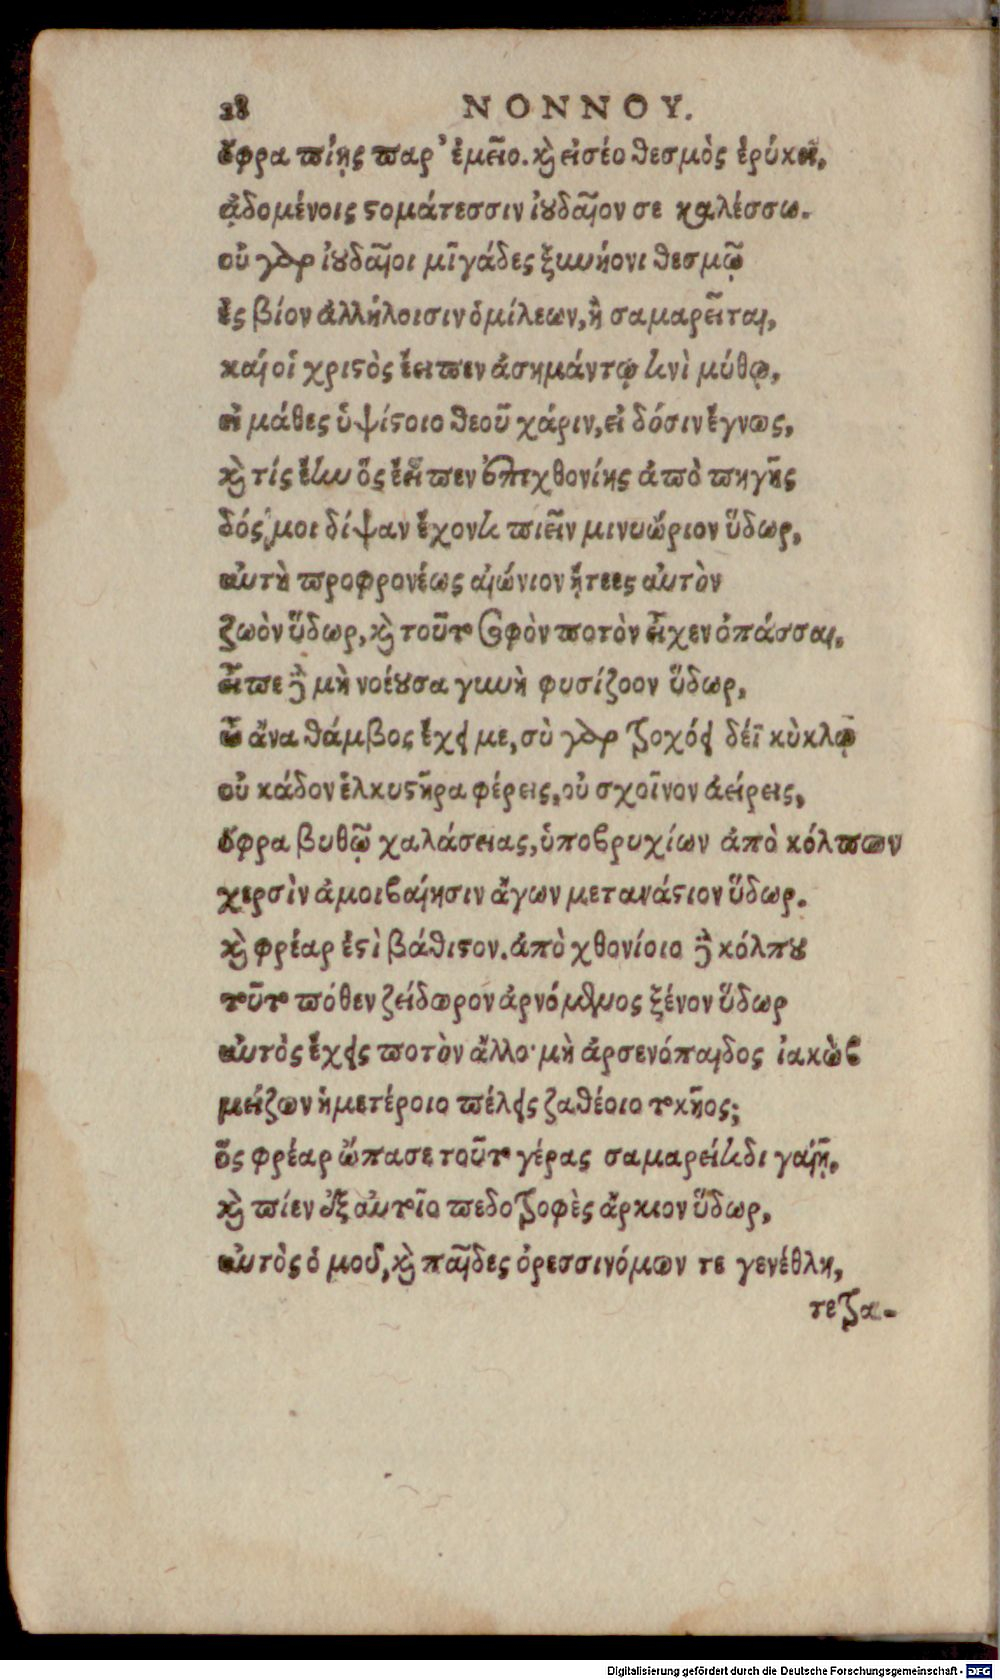 28 ΝΟΝΝΟΥ.
ὄφρα πίῃς παρ' ἐμεῖο. καὶ εἰσέο θεσμὸς ἐρύκει,
ᾀδομένοις στομάτεσσιν ἰουδαῖον σε καλέσσω.
οὐ γὰρ ἰουδαῖοι μιγάδες ξυνήονι θεσμῷ
ἐς βίον ἀλλήλοισιν ὁμίλεων, ἢ σαμαρεῖται,
καί οἱ χριστὸς ἔειπεν ἀσημάντῳ τινὶ μύθῳ,
εἰ μάθες ὑψίστοιο θεοῦ χάριν, εἰ δόσιν ἔγνως,
καὶ τίς ἔην ὃς ἔειπεν ἐπιχθονίης ἀπὸ πηγῆς
δός μοι δίψαν ἔχοντι πιεῖν μινυώριον ὕδωρ,
αὐτὴ προφρονέως αἰώνιον ᾔτεες αὐτὸν
ζωὸν ὕδωρ, καὶ τοῦτο σοφὸν ποτὸν εἶχεν ὀπάσσαι.
εἶπε δὲ μὴ νοέουσα γυνὴ φυσίζοον ὕδωρ,
ὦ ἄνα θάμβος ἔχει με, σὺ γὰρ τροχόεντι δέϊ κὺκλῳ
οὐ κάδον ἑλκυστῆρα φέρεις, οὐ σχοῖνον ἀείρεις,
ὄφρα βυθῷ χαλάσειας, ὑποβρυχίων ἀπὸ κόλπων
χερσὶν ἀμοιβαίῃσιν ἄγων μετανάστιον ὕδωρ.
καὶ φρέαρ ἐστὶ βάθιστον. ἀπὸ χθονίοιο δὲ κόλπου
τοῦτο πόθεν ζείδωρον ἀρνόμενος ξένον ὕδωρ
αὐτὸς ἔχεις ποτὸν ἄλλο· μὴ ἀρσενόπαιδος ἰακὼβ
μείζων ἡμετέροιο πέλεις ζαθέοιο τοκῆος;
ὃς φρέαρ ὤπασε τοῦτο γέρας σαμαρείτιδι γαίῃ,
καὶ πίεν ἐξ αὐτοῖο πεδοτρεφὲς ἄρκιον ὕδωρ,
αὐτὸς ὁμοῦ, καὶ παῖδες ὀρεσσινόμων τε γενέθλη,
τετρα-
Digitalisierung gefördert durch die Deutsche Forschungsgemeinschaft - DFG